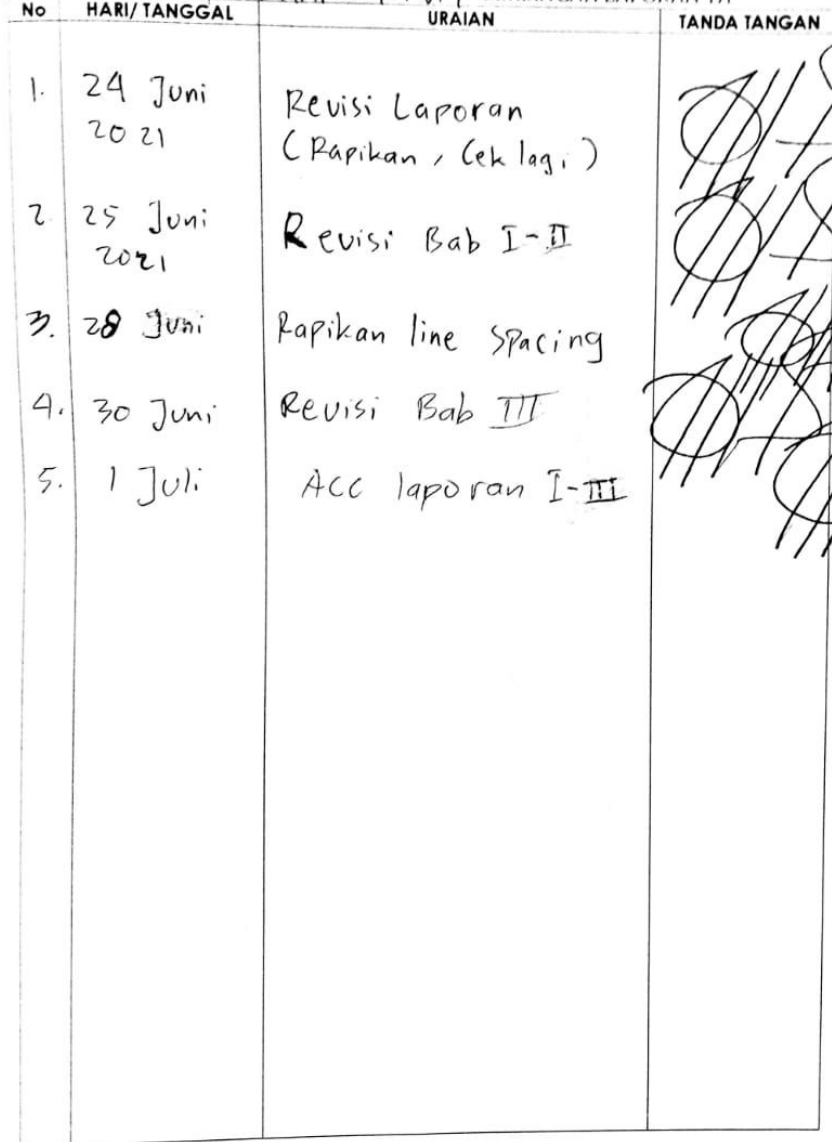 No HARI/TANGGAL URAIAN TANDA TANGAN
1. 24 Juni Revisi Laporan
2021 (Rapikan, Cek lagi)
2 25 Juni Revisi Bab I-II
2021
3. 28 Juni Rapikan line spacing
4. 30 Juni Revisi Bab III
5. 1 Juli ACC laporan I-III